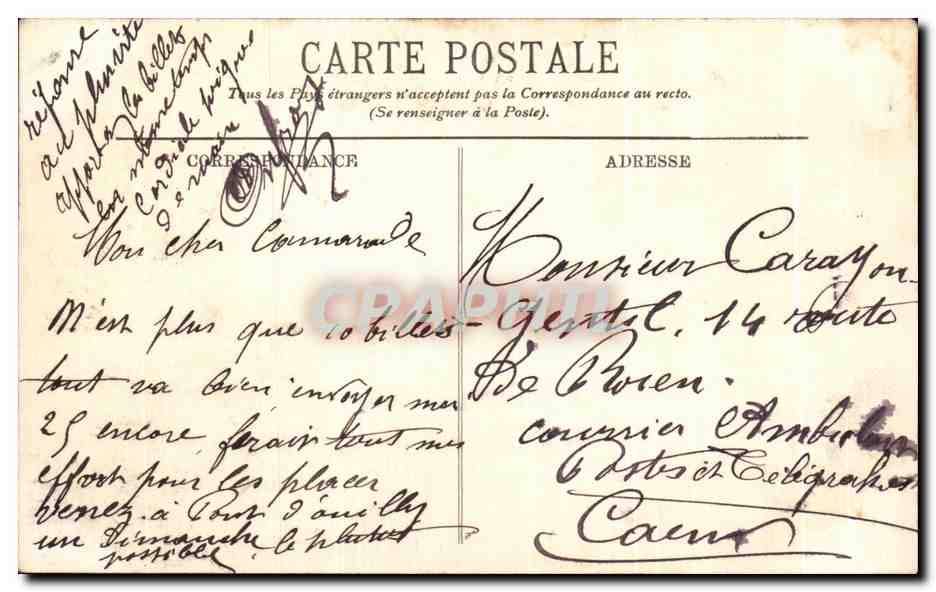 CARTE POSTALE
Tous les Pays étrangers n'acceptent pas la Correspondance au recto.
(Se renseigner à la Poste).
CORRESPONDANCE
ADRESSE
réponse
au plus vite
les billets
en même temps
Cordiale
demain
Mon cher Camarade
N'est plus que 10 billets
tout va bien envoyer men
25 encore, ferait tout mes
effort pour les placer
venez à Pont d'ouilly
un Dimanche le plutot
possible
Monsieur Carayon-
Gentil. 14 route
De Rouen.
courrier Ambulan
Postes et Télégraphes
Caen
CPAPUTI